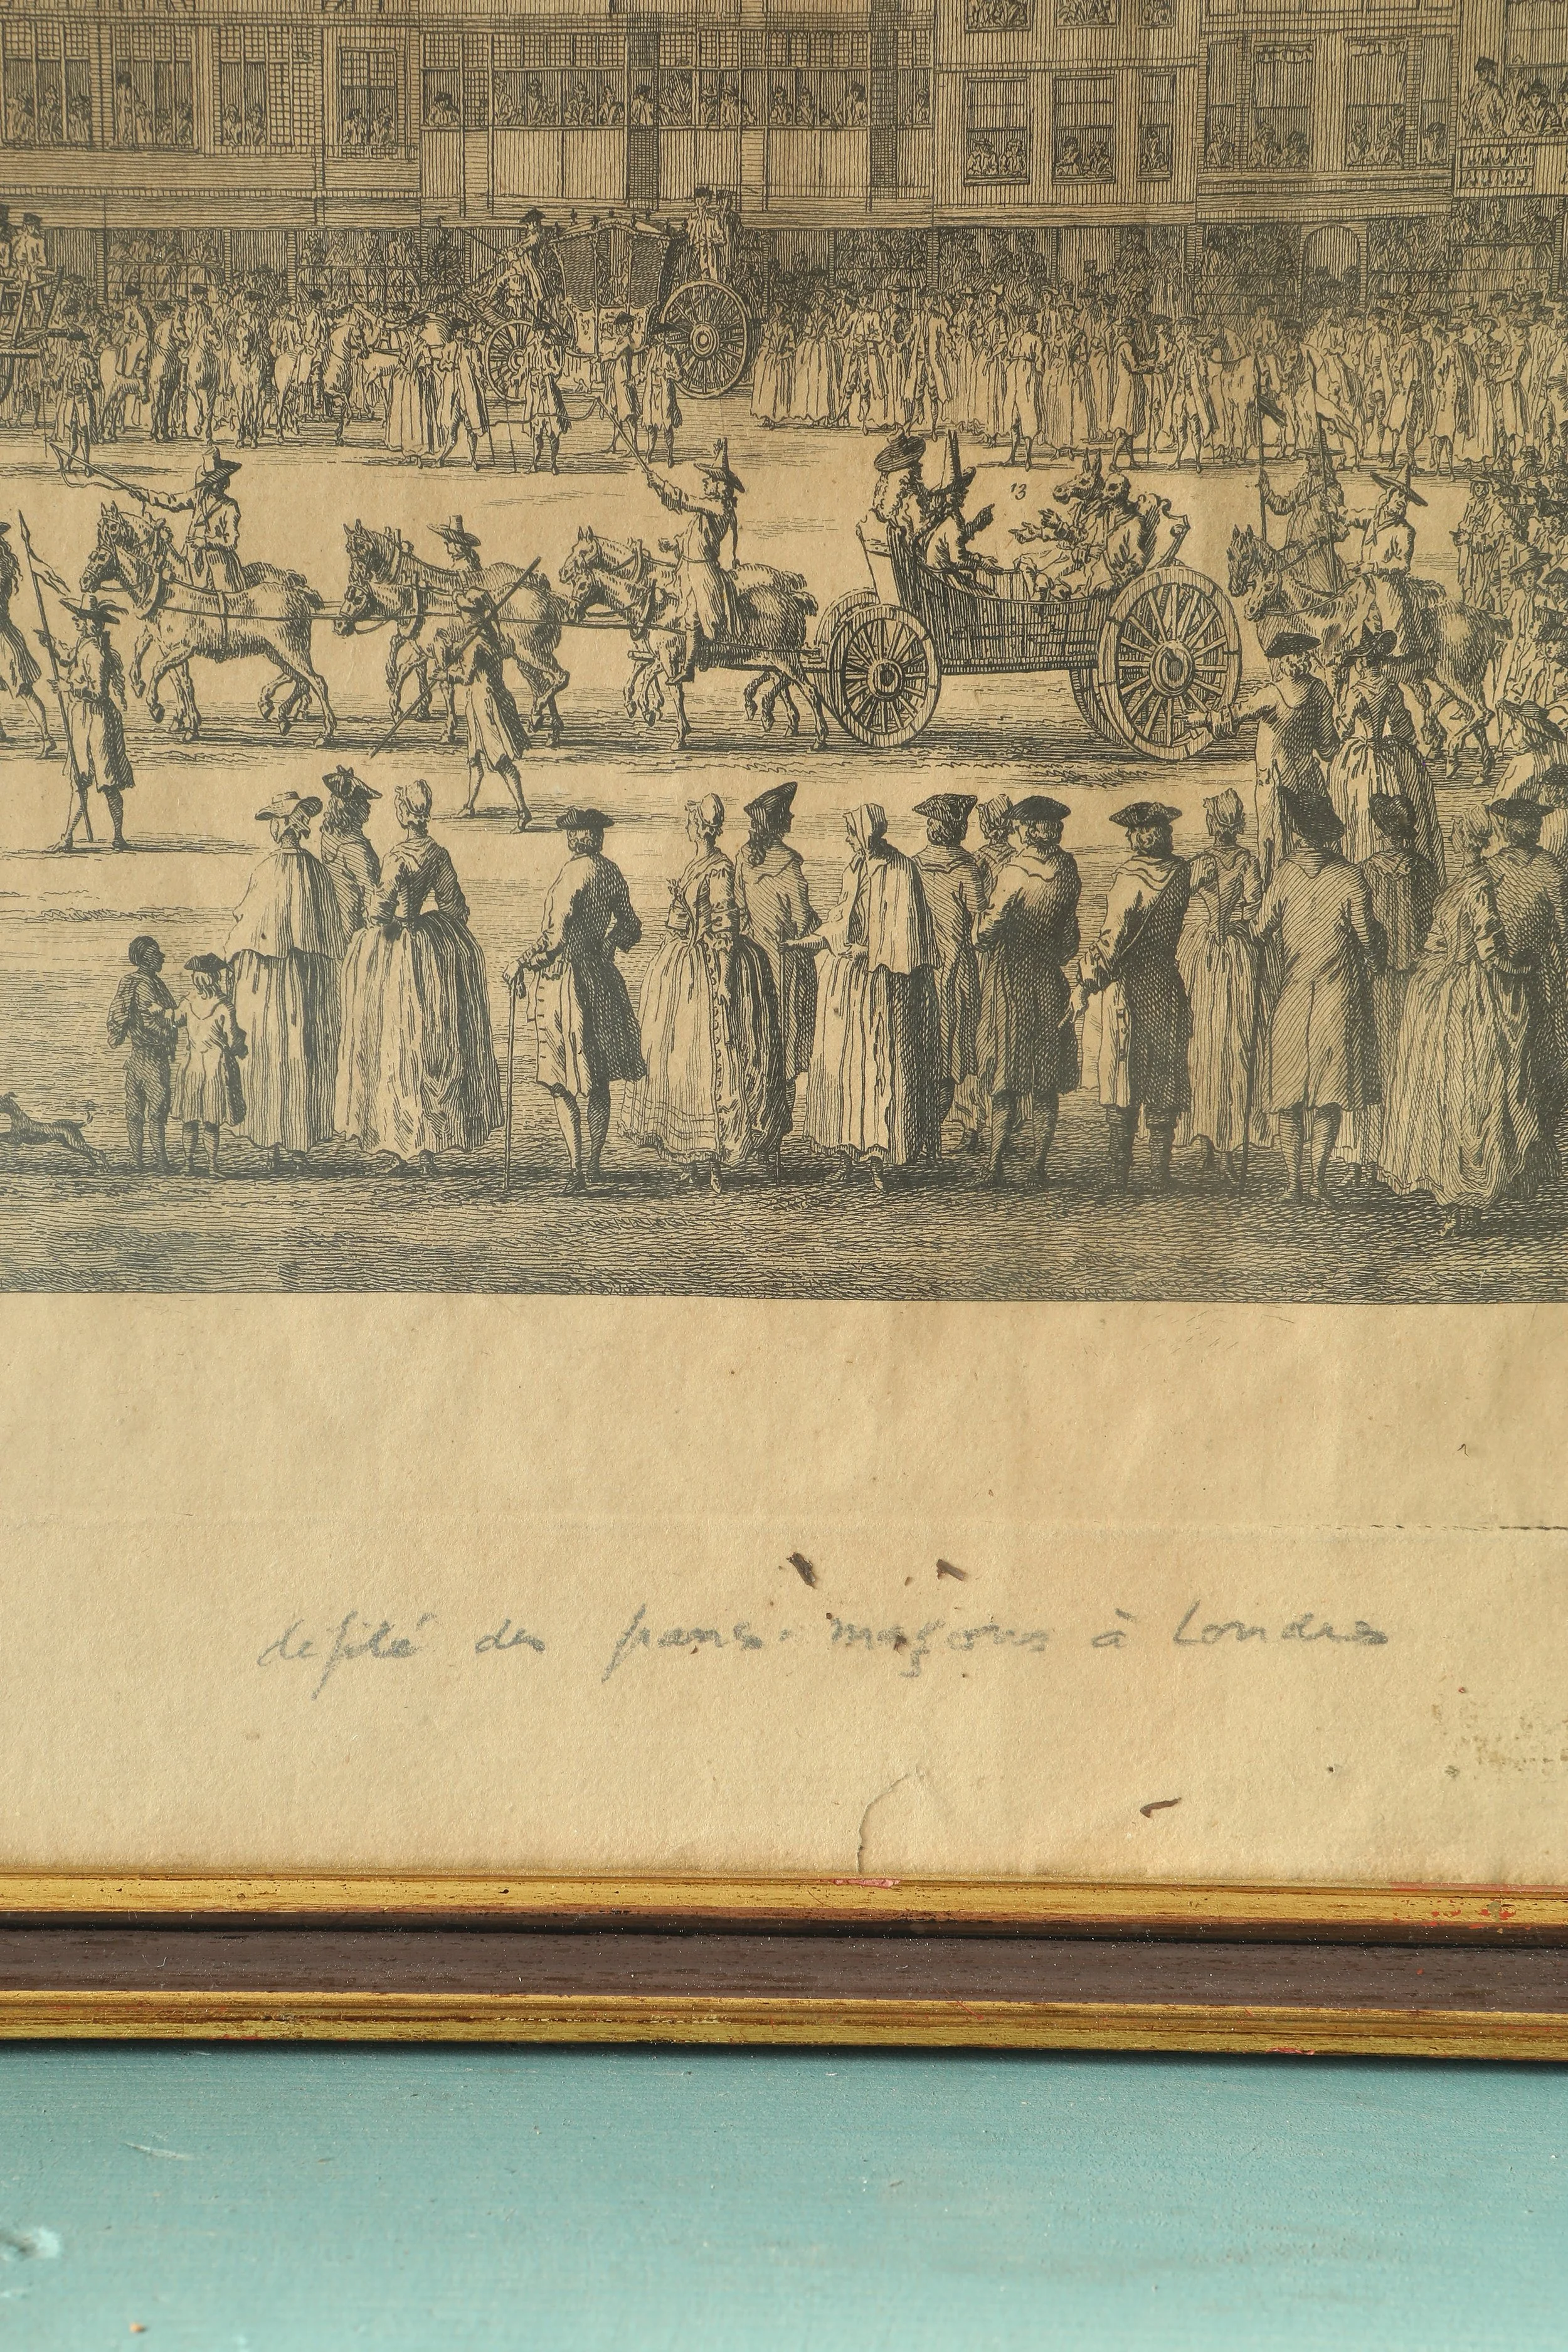 13
defilé des francs-maçons à Londres